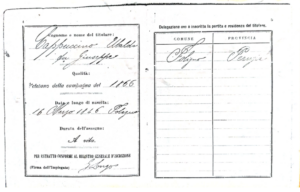 Cognome e nome del titolare:
Cappuccino Ubaldo
fu Giuseppe
Qualità:
Pensione della campagna del 1866
Data e luogo di nascita:
16 Marzo 1846 Foligno
Durata dell'assegno:
A vita
PER ESTRATTO CONFORME AL REGISTRO GENERALE D'ISCRIZIONE
(Firma dell'Impiegato)
Delegazione ove è inscritta la partita e residenza del titolare.
COMUNE PROVINCIA
Foligno Perugia